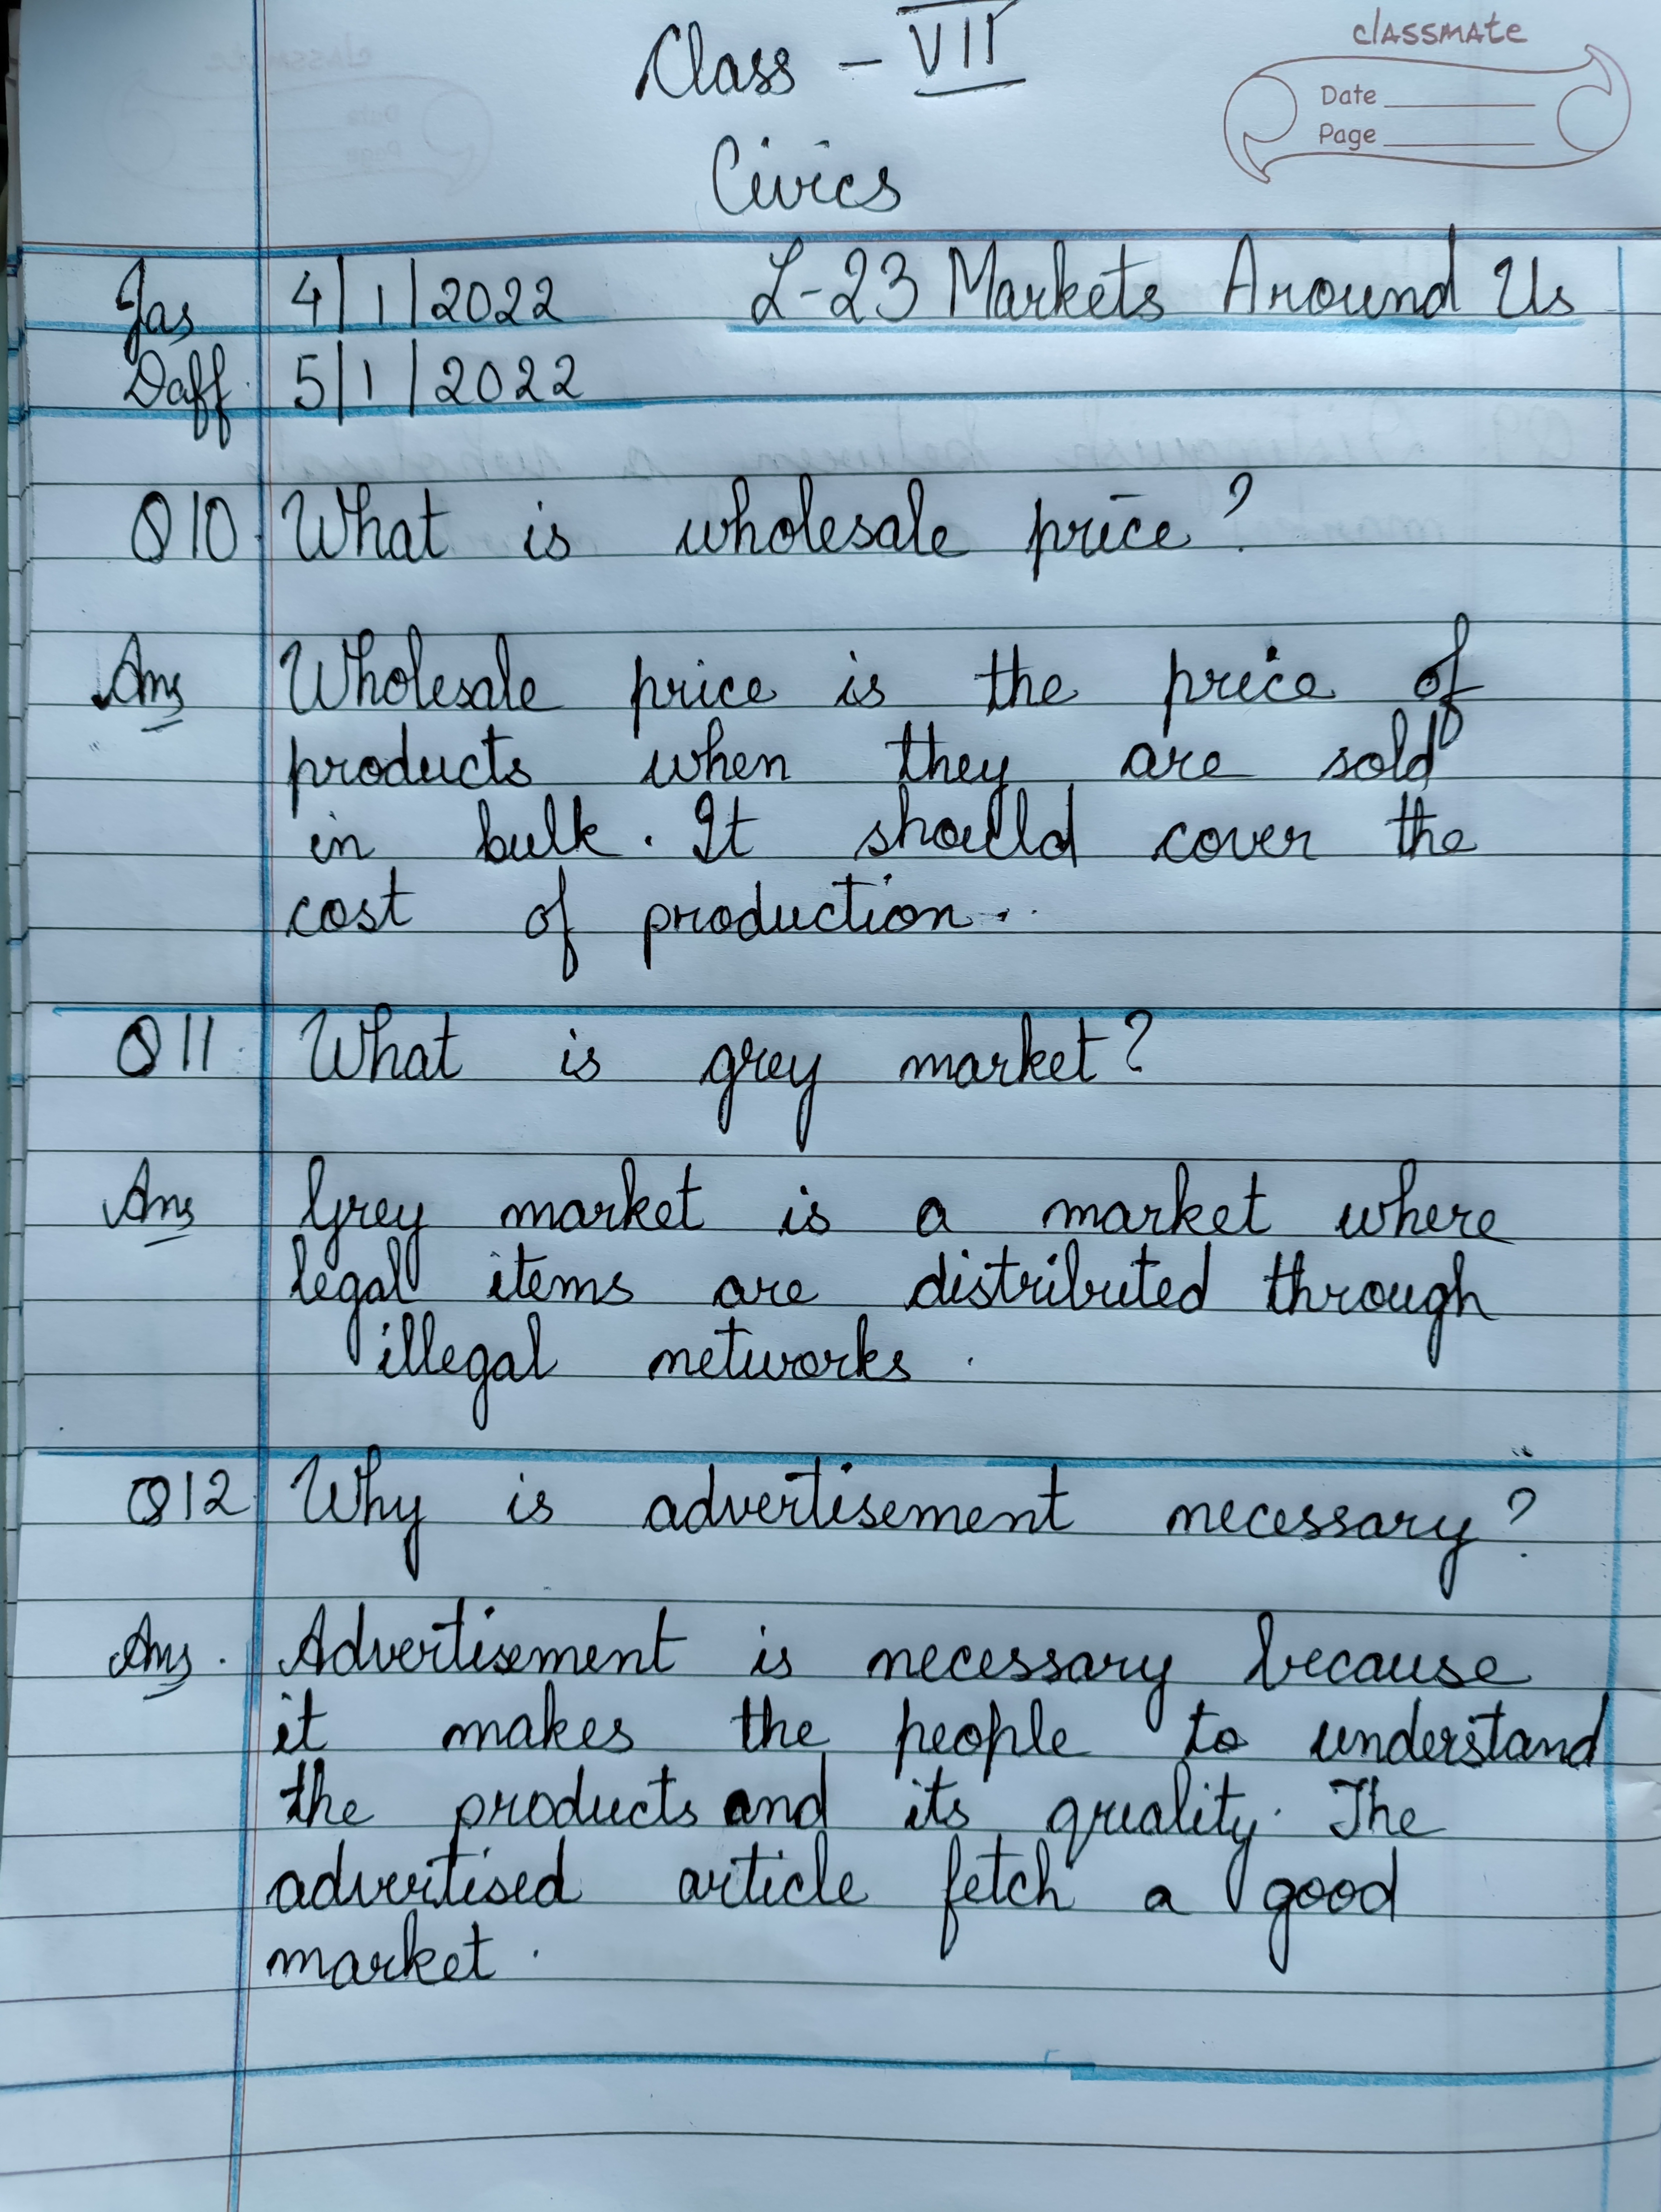 Class - VII
classmate
Date
Page
Civics
Jas 4/1/2022 L-23 Markets Around Us
Daff. 5/1/2022
Q10. What is wholesale price?
Ans Wholesale price is the price of
products when they are sold
in bulk. It should cover the
cost of production.
Q11. What is grey market?
Ans Grey market is a market where
legal items are distributed through
illegal networks.
Q12 Why is advertisement necessary?
Ans. Advertisement is necessary because
it makes the people to understand
the products and its quality. The
advertised article fetch a good
market.